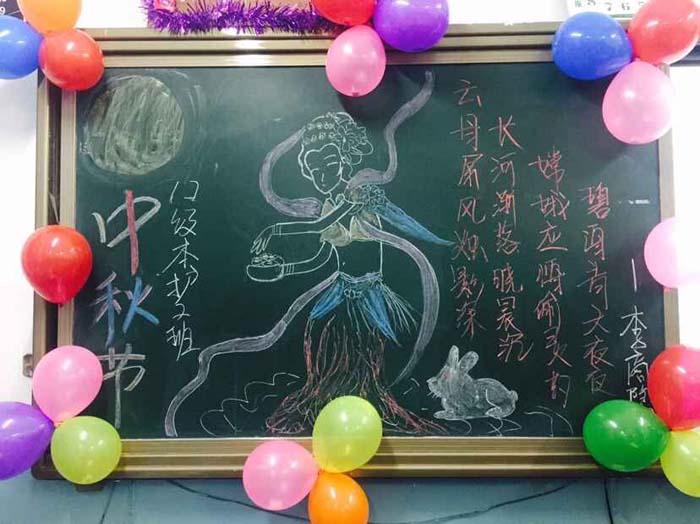 中秋节
12级本护2班
云母屏风烛影深
长河渐落晓晨沉
嫦娥应悔偷灵药
碧海青天夜夜
—李商隐